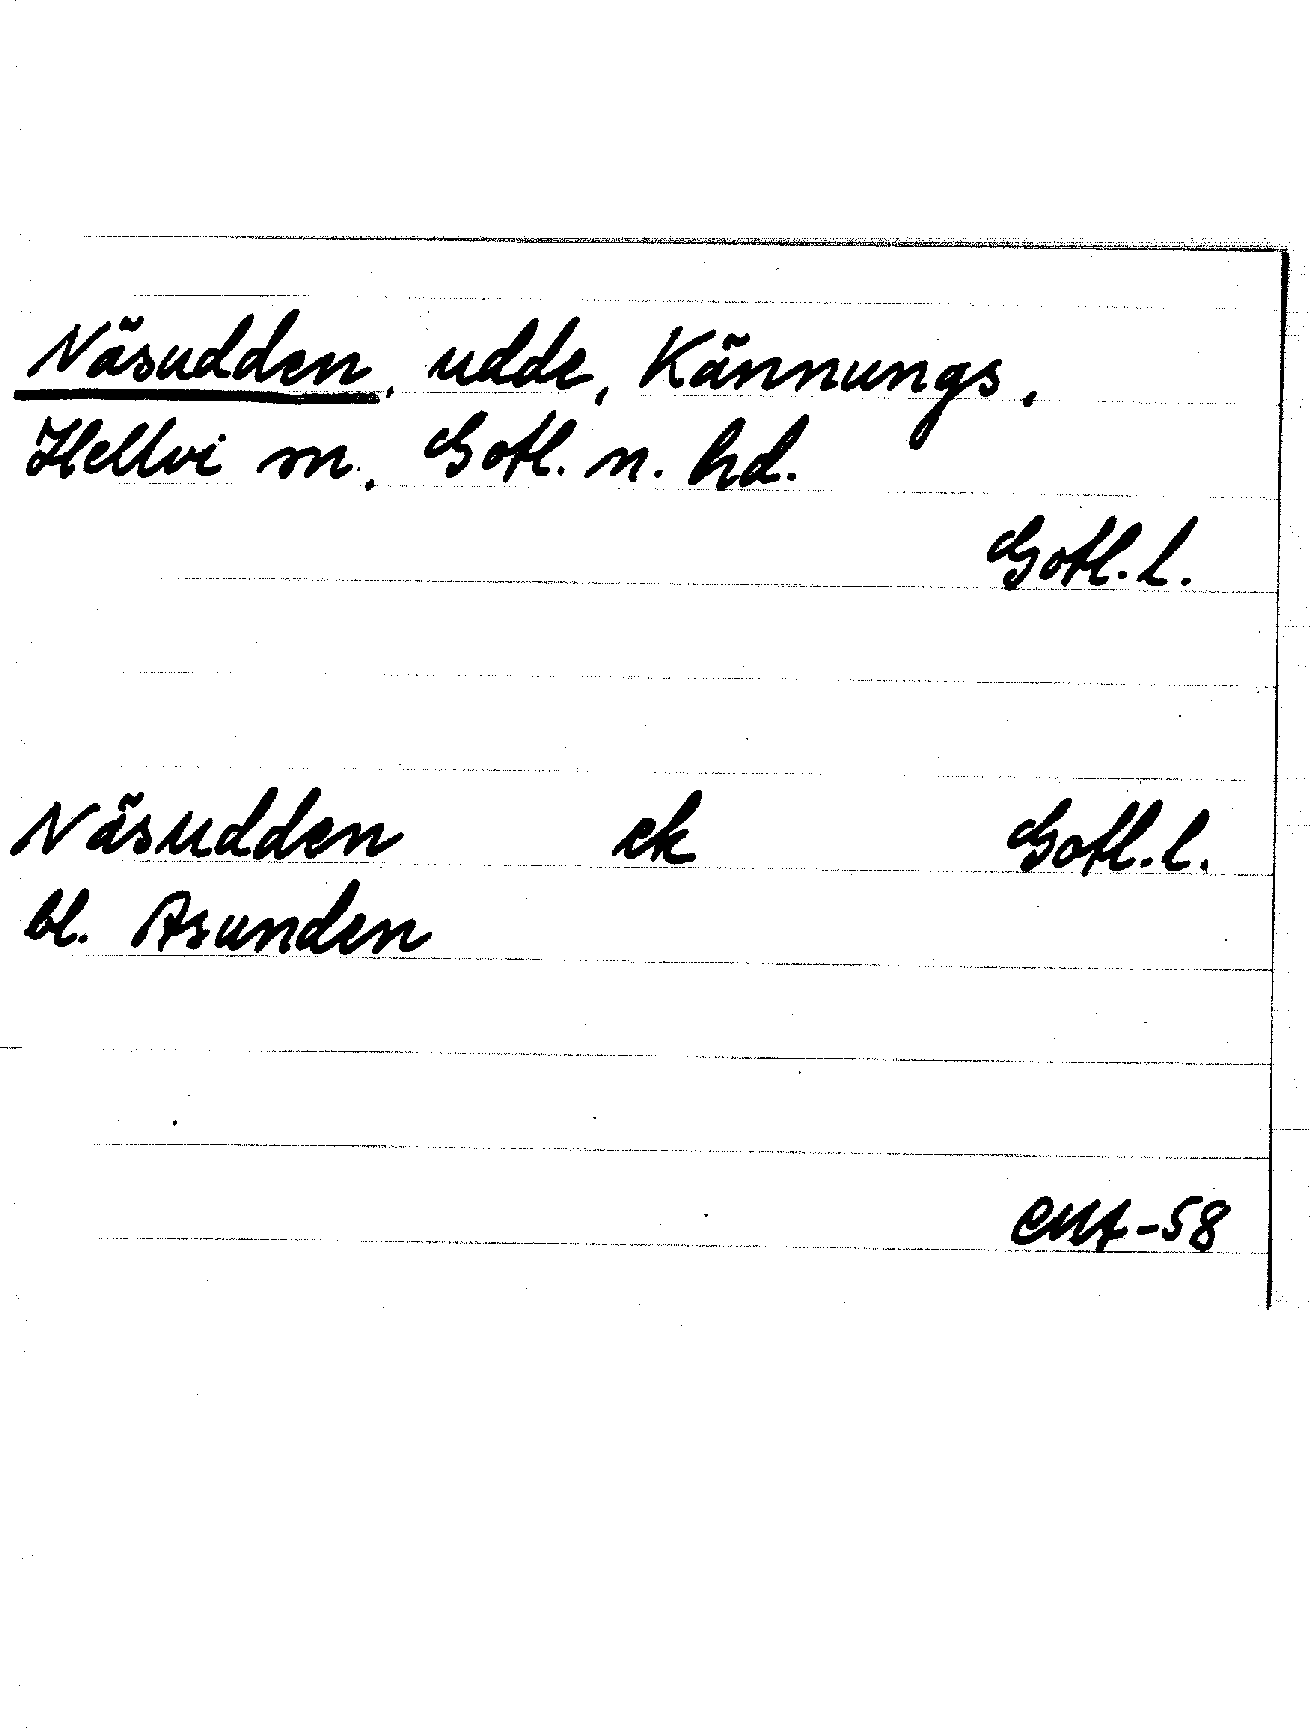 Näsudden, udde, Kännungs,
Hellvi sn, Gotl. n. hd.
Gotl. l.
Näsudden ek Gotl. l.
bl. Asunden